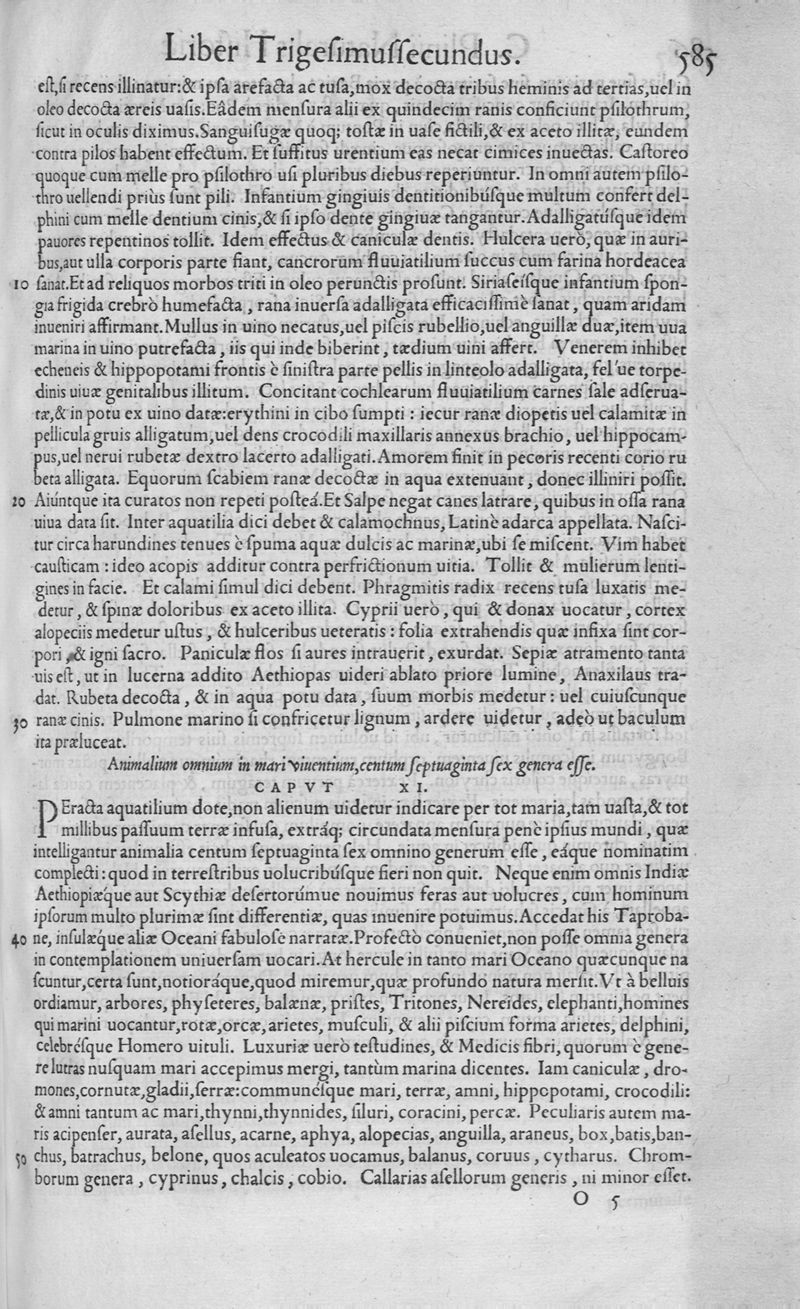 Liber Trigeſimuſſecundus. 585
eſt,ſi recens illinatur:& ipſa arefacta ac tuſa,mox decocta tribus heminis ad tertias,uel in
oleo decocta æreis uaſis.Eâdem menſura alii ex quindecim ranis conficiunt pſilothrum,
ſicut in oculis diximus.Sanguiſugæ quoq; toſtæ in uaſe fictili,& ex aceto illitæ, eundem
contra pilos habent effectum. Et ſuffitus urentium eas necat cimices inuectas. Caſtoreo
quoque cum melle pro pſilothro uſi pluribus diebus reperiuntur. In omni autem pſilo-
thro uellendi priùs ſunt pili. Infantium gingiuis dentitionibúſque multum confert del-
phini cum melle dentium cinis,& ſi ipſo dente gingiuæ tangantur.Adalligatúſque idem
pauores repentinos tollit. Idem effectus & caniculæ dentis. Hulcera uerò, quæ in auri-
bus,aut ulla corporis parte fiant, cancrorum fluuiatilium ſuccus cum farina hordeacea
10 ſanat.Et ad reliquos morbos triti in oleo perunctis proſunt. Siriaſeíſque infantium ſpon-
gia frigida crebrò humefacta , rana inuerſa adalligata efficaciſſimè ſanat , quam aridam
inueniri affirmant.Mullus in uino necatus,uel piſcis rubellio,uel anguillæ duæ,item uua
marina in uino putrefacta , iis qui inde biberint , tædium uini affert. Venerem inhibet
echeneis & hippopotami frontis è ſiniſtra parte pellis in linteolo adalligata, fel ue torpe-
dinis uiuæ genitalibus illitum. Concitant cochlearum fluuiatilium carnes ſale adſerua-
tæ,& in potu ex uino datæ:erythini in cibo ſumpti : iecur ranæ diopetis uel calamitæ in
pellicula gruis alligatum,uel dens crocodili maxillaris annexus brachio, uel hippocam-
pus,uel nerui rubetæ dextro lacerto adalligati.Amorem finit in pecoris recenti corio ru
beta alligata. Equorum ſcabiem ranæ decoctæ in aqua extenuant , donec illiniri poſſit.
20 Aiúntque ita curatos non repeti poſteá.Et Salpe negat canes latrare, quibus in offa rana
uiua data ſit. Inter aquatilia dici debet & calamochnus, Latinè adarca appellata. Naſci-
tur circa harundines tenues è ſpuma aquæ dulcis ac marinæ,ubi ſe miſcent. Vim habet
cauſticam : ideo acopis additur contra perfrictionum uitia. Tollit & mulierum lenti-
gines in facie. Et calami ſimul dici debent. Phragmitis radix recens tuſa luxatis me-
detur , & ſpinæ doloribus ex aceto illita. Cyprii uerò , qui & donax uocatur , cortex
alopeciis medetur uſtus , & hulceribus ueteratis : folia extrahendis quæ infixa ſint cor-
pori ,& igni ſacro. Paniculæ flos ſi aures intrauerit , exurdat. Sepiæ atramento tanta
uis eſt , ut in lucerna addito Aethiopas uideri ablato priore lumine, Anaxilaus tra-
dat. Rubeta decocta , & in aqua potu data , ſuum morbis medetur : uel cuiuſcunque
30 ranæ cinis. Pulmone marino ſi confricetur lignum , ardere uidetur , adeò ut baculum
ita præluceat.
Animalium omnium in mari viuentium,centum ſeptuaginta ſex genera eſſe.
CAPVT XI.
PEracta aquatilium dote,non alienum uidetur indicare per tot maria,tam uaſta,& tot
millibus paſſuum terræ infuſa, extráq; circundata menſura penè ipſius mundi , quæ
intelligantur animalia centum ſeptuaginta ſex omnino generum eſſe , eáque nominatim
complecti : quod in terreſtribus uolucribúſque fieri non quit. Neque enim omnis Indiæ
Aethiopiæque aut Scythiæ deſertorúmue nouimus feras aut uolucres , cum hominum
ipſorum multo plurimæ ſint differentiæ, quas inuenire potuimus.Accedat his Taproba-
40 ne, inſulæque aliæ Oceani fabuloſè narratæ.Profectò conueniet,non poſſe omnia genera
in contemplationem uniuerſam uocari.At hercule in tanto mari Oceano quæcunque na
ſcuntur,certa ſunt,notioráque,quod miremur,quæ profundo natura merſit.Vt à belluis
ordiamur, arbores, phyſeteres, balænæ, priſtes, Tritones, Nereides, elephanti,homines
qui marini uocantur,rotæ,orcæ,arietes, muſculi, & alii piſcium forma arietes, delphini,
celebréſque Homero uituli. Luxuriæ uerò teſtudines, & Medicis fibri, quorum è gene-
re lutras nuſquam mari accepimus mergi, tantùm marina dicentes. Iam caniculæ , dro-
mones,cornutæ,gladii,ſerræ:communéſque mari, terræ, amni, hippopotami, crocodili:
& amni tantum ac mari,thynni,thynnides, ſiluri, coracini,percæ. Peculiaris autem ma-
ris acipenſer, aurata, aſellus, acarne, aphya, alopecias, anguilla, araneus, box,batis,ban-
50 chus, batrachus, belone, quos aculeatos uocamus, balanus, coruus , cytharus. Chrom-
borum genera , cyprinus, chalcis, cobio. Callarias aſellorum generis , ni minor eſſet.
O 5